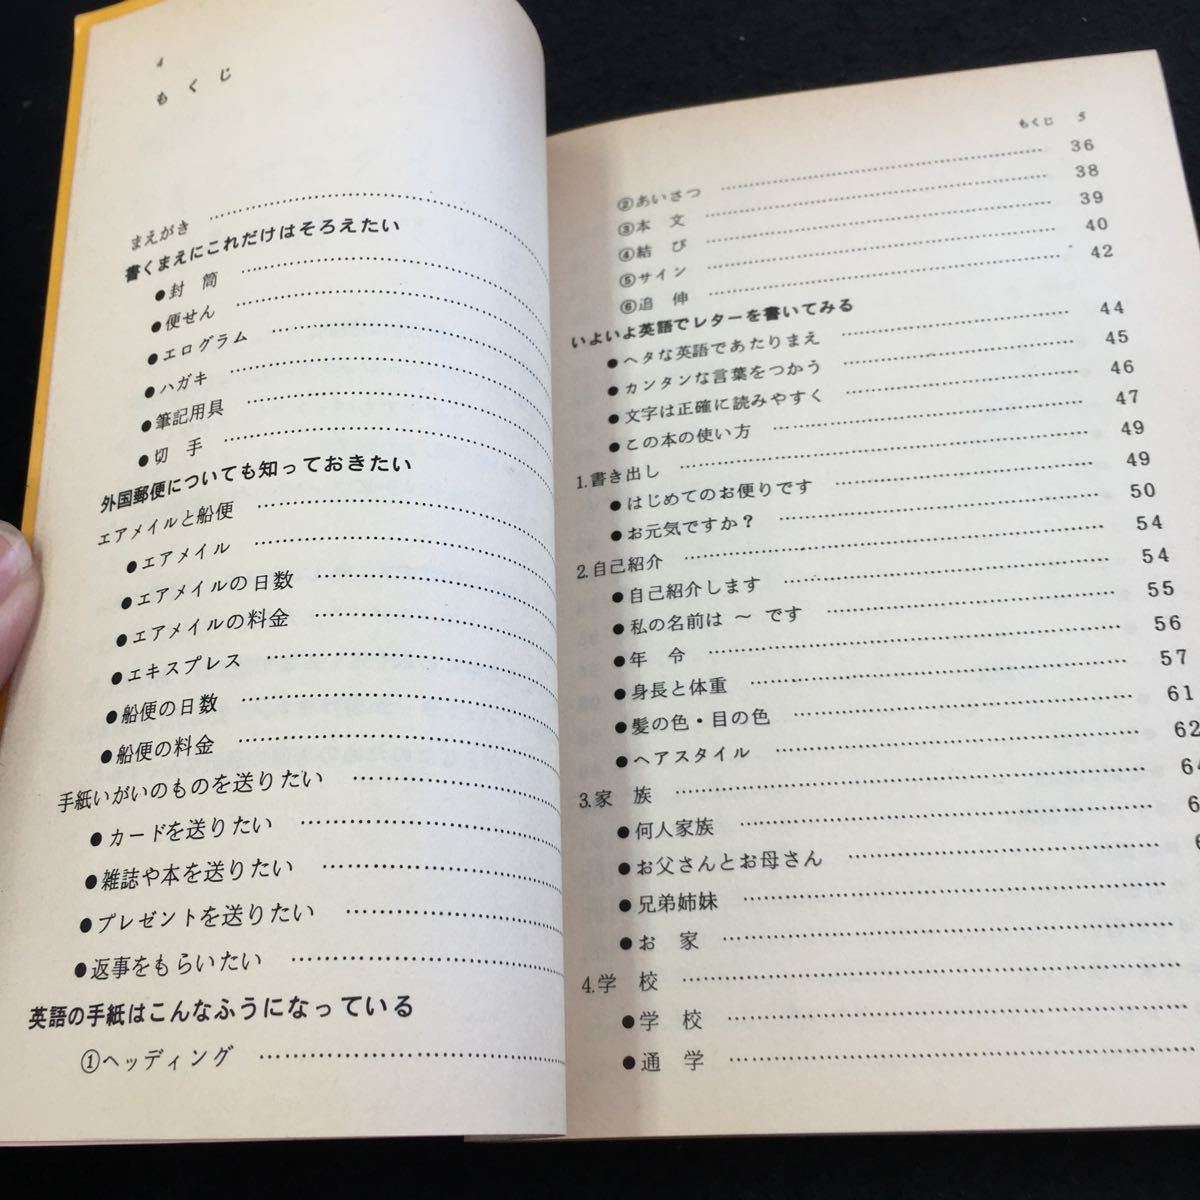 4
もくじ
まえがき ……………………
書くまえにこれだけはそろえたい
●封　筒 ……………………
●便せん ……………………
●エログラム ……………………
●ハガキ ……………………
●筆記用具 ……………………
●切　手 ……………………
外国郵便についても知っておきたい
エアメイルと船便 ……………………
●エアメイル ……………………
●エアメイルの日数 ……………………
●エアメイルの料金 ……………………
●エキスプレス ……………………
●船便の日数 ……………………
●船便の料金 ……………………
手紙いがいのものを送りたい ……………………
●カードを送りたい ……………………
●雑誌や本を送りたい ……………………
●プレゼントを送りたい ……………………
●返事をもらいたい ……………………
英語の手紙はこんなふうになっている
①ヘッディング ……………………
もくじ　5
②あいさつ …………………… 36
③本　文 …………………… 38
④結　び …………………… 39
⑤サイン …………………… 40
⑥追　伸 …………………… 42
いよいよ英語でレターを書いてみる
●ヘタな英語であたりまえ …………………… 44
●カンタンな言葉をつかう …………………… 45
●文字は正確に読みやすく …………………… 46
●この本の使い方 …………………… 47
1.書き出し …………………… 49
●はじめてのお便りです …………………… 49
●お元気ですか？ …………………… 50
2.自己紹介 …………………… 54
●自己紹介します …………………… 54
●私の名前は ～ です …………………… 55
●年　令 …………………… 56
●身長と体重 …………………… 57
●髪の色・目の色 …………………… 61
●ヘアスタイル …………………… 62
3.家　族 …………………… 64
●何人家族 ……………………
●お父さんとお母さん ……………………
●兄弟姉妹 ……………………
●お　家 ……………………
4.学　校 ……………………
●学　校 ……………………
●通　学 ……………………